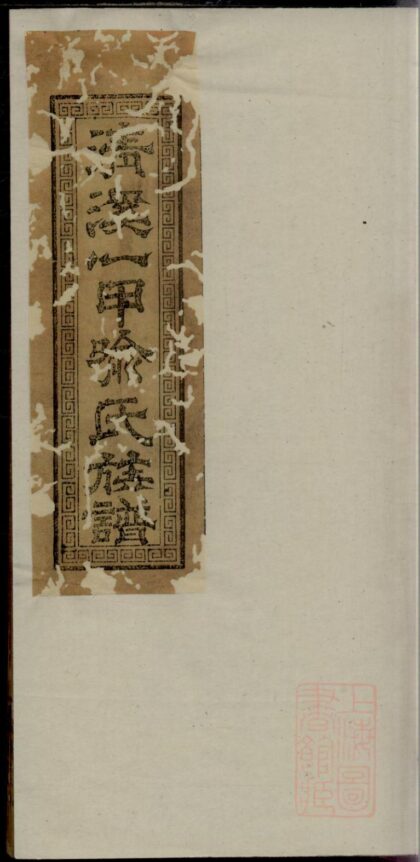 清溪一甲喻氏族譜
上海圖
書館藏